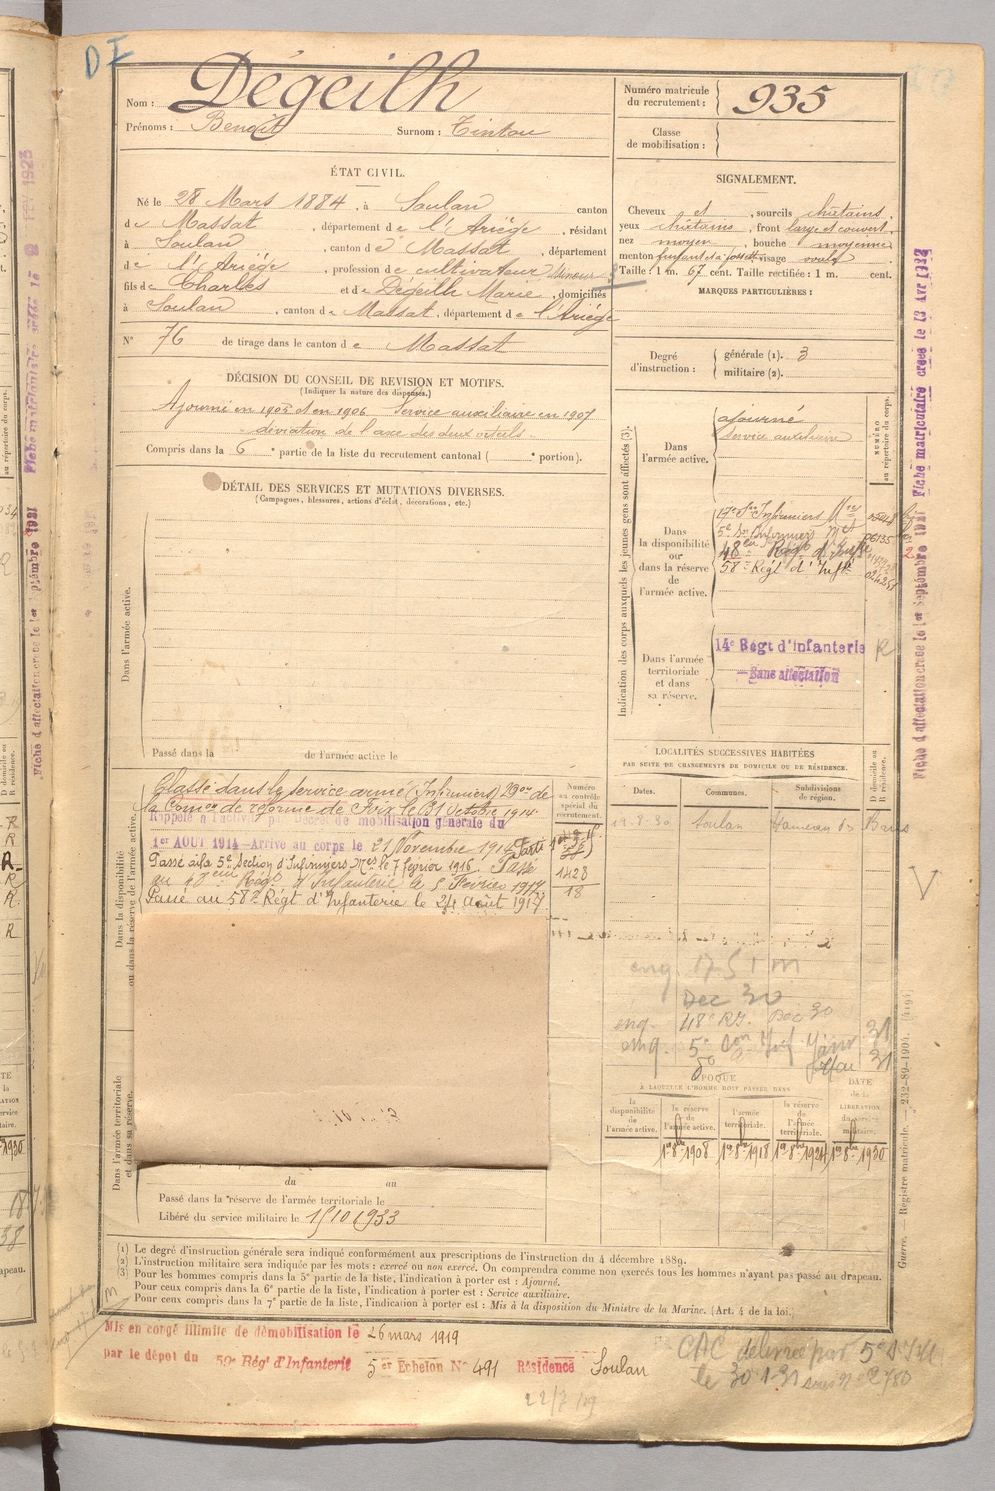 DI
Nom : Dégeilh
Prénoms : Benoit Surnom : Tintou
Numéro matricule du recrutement : 935
Classe de mobilisation :
ÉTAT CIVIL.
Né le 28 Mars 1884, à Soulan canton
de Massat, département de l'Ariège, résidant
à Soulan, canton de Massat, département
de l'Ariège, profession de cultivateur
fils de Charles et de Dégeilh Marie, domiciliés
à Soulan, canton de Massat, département de l'Ariège
N° 76 de tirage dans le canton de Massat
SIGNALEMENT.
Cheveux et, sourcils châtains,
yeux châtains, front large et couvert,
nez moyen, bouche moyenne
menton visage ovale
Taille : 1 m. 67 cent. Taille rectifiée : 1 m. cent.
MARQUES PARTICULIÈRES :
Degré d'instruction : générale (1). 3
militaire (2).
DÉCISION DU CONSEIL DE REVISION ET MOTIFS.
(Indiquer la nature des dispenses.)
Ajourné en 1905 et en 1906 Service auxiliaire en 1907
déviation de l'axe des deux orteils.
Compris dans la 6e partie de la liste du recrutement cantonal ( e portion).
DÉTAIL DES SERVICES ET MUTATIONS DIVERSES.
(Campagnes, blessures, actions d'éclat, décorations, etc.)
Dans l'armée active.
Passé dans la de l'armée active le
Indication des corps auxquels les jeunes gens sont affectés (3).
NUMÉRO au répertoire du corps.
Dans l'armée active.
ajourné
Service auxiliaire
Dans la disponibilité ou dans la réserve de l'armée active.
17e Son Infirmiers Mres
5e Son Infirmiers Mres
48eme Régt d'Infie
58e Régt d'Infie
Dans l'armée territoriale et dans sa réserve.
14e Régt d'infanterie
Sans affectation
R
LOCALITÉS SUCCESSIVES HABITÉES
PAR SUITE DE CHANGEMENTS DE DOMICILE OU DE RÉSIDENCE.
Dates. Communes. Subdivisions de région. D domicile ou R résidence.
Soulan Hameau de
Dans la disponibilité ou dans la réserve de l'armée active.
Classé dans le service armé (Infirmiers)
la Comon de réforme de Foix le 31 Octobre 1914
Rappelé à l'activité par Décret de mobilisation générale du
1er AOUT 1914 - Arrivé au corps le 21 Novembre 1914
Passé à la 5e Section d'Infirmiers Mres le 7 février 1916. Passé
au 48eme Régt d'Infanterie le 5 Février 1917
Passé au 58e Régt d'Infanterie le 24 Août 1917
Numéro au contrôle spécial du recrutement.
1428
18
eng. 17 S I M
Dec 30
eng. 48e RI. Dec 30
ÉPOQUE
À LAQUELLE L'HOMME DOIT PASSER DANS
la disponibilité de l'armée active.
la réserve de l'armée active.
l'armée territoriale.
la réserve de l'armée territoriale.
DATE de la LIBÉRATION du service militaire.
1er 8bre 1908 1er 8bre 1918 1er 8bre 1924 1er 8bre 1930
Dans l'armée territoriale et dans sa réserve.
du au
Passé dans la réserve de l'armée territoriale le
Libéré du service militaire le 15 10 1933
(1) Le degré d'instruction générale sera indiqué conformément aux prescriptions de l'instruction du 4 décembre 1889.
(2) L'instruction militaire sera indiquée par les mots : exercé ou non exercé. On comprendra comme non exercés tous les hommes n'ayant pas passé au drapeau.
(3) Pour les hommes compris dans la 5e partie de la liste, l'indication à porter est : Ajourné.
Pour ceux compris dans la 6e partie de la liste, l'indication à porter est : Service auxiliaire.
Pour ceux compris dans la 7e partie de la liste, l'indication à porter est : Mis à la disposition du Ministre de la Marine. (Art. 4 de la loi.)
Mis en congé illimité de démobilisation le 26 mars 1919
par le dépôt du 59e Régt d'Infanterie 5er Echelon N° 491 Résidence Soulan
CAC délivrée par
le 30 1-31 sous N° 2780
22/7/19
Guerre. Registre matricule. — 232-89-1904. [419]
Fiche d'affectation créée le 1er Septembre 1921
Fiche matriculaire créée le 13 Avr 1932